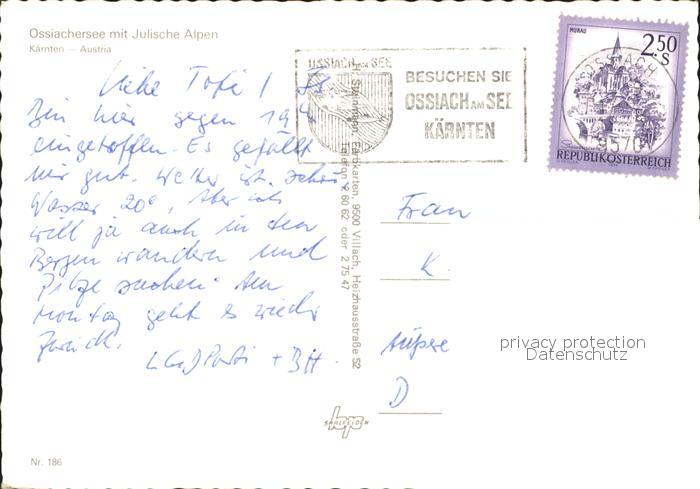 Ossiachersee mit Julische Alpen
Kärnten — Austria
Liebe
Bin hier gegen 19h
eingetroffen. Es gefällt
mir gut. Wetter ist schön
Wasser 20°, Aber ich
will ja auch in den
Bergen wandern und
Pilze suchen. Am
Montag geht es wieder
zurück.
OSSIACH AM SEE
BESUCHEN SIE
OSSIACH AM SEE
KÄRNTEN
OSSIACH
9570
MURAU
2.50
S
REPUBLIK ÖSTERREICH
Farbkarten, 9500 Villach, Heizhausstraße 52
Telefon 2 60 62 oder 2 75 47
Frau
K.
D
privacy protection
Datenschutz
SAALFELDEN
Nr. 186